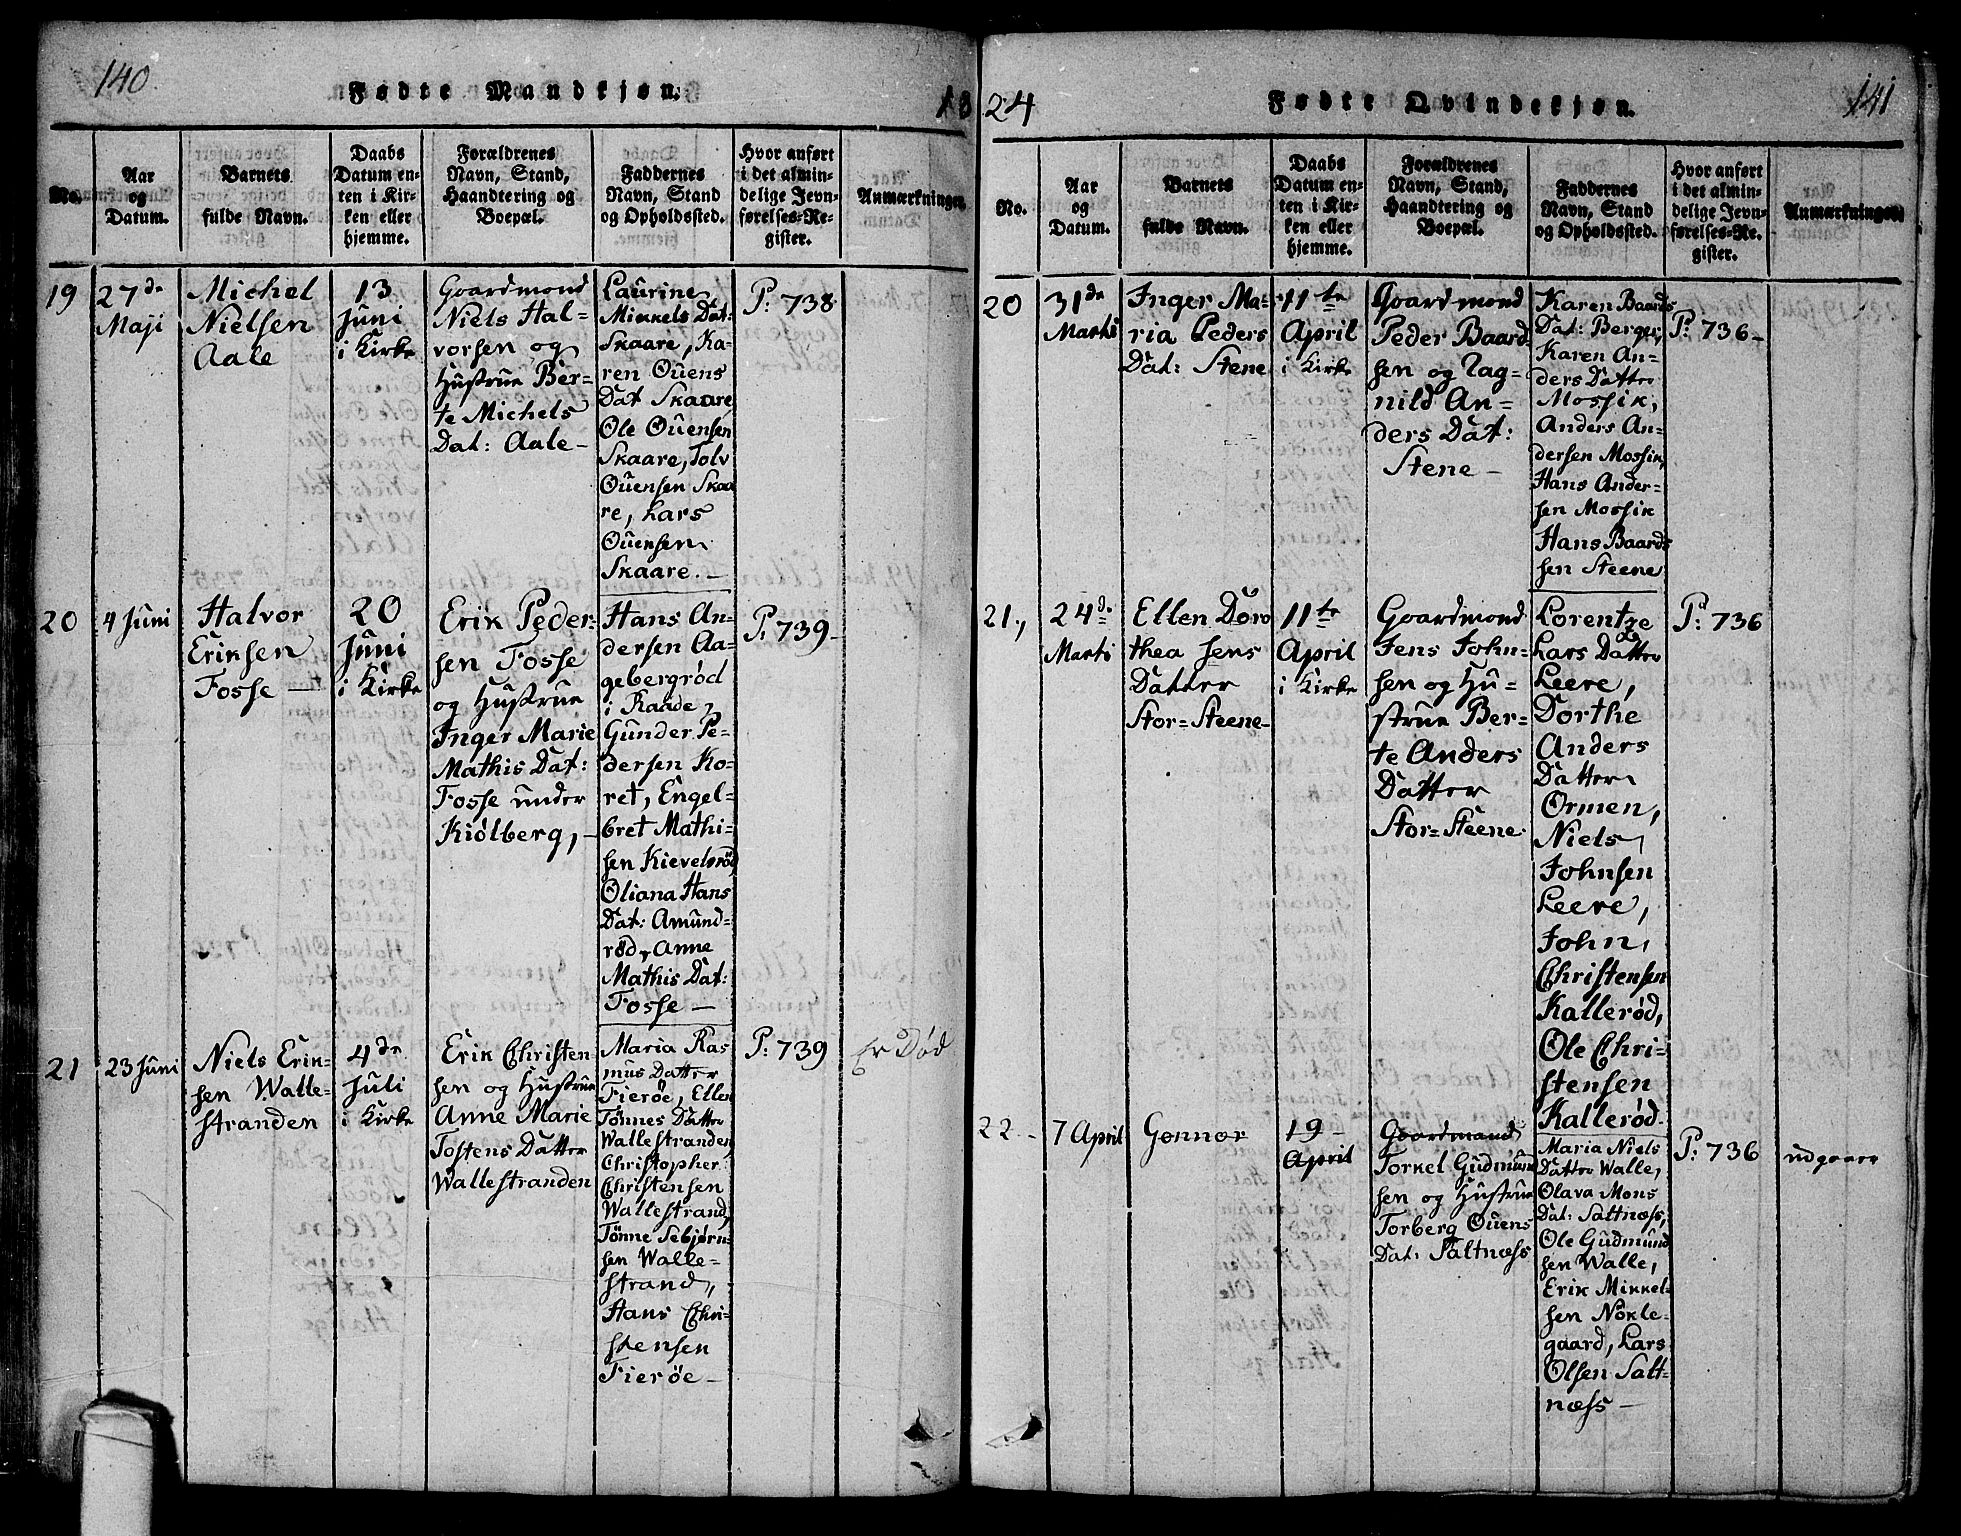 140.
Fødte Mandkjøn.
18
No.
Aar
og
Datum.
Barnets
fulde Navn.
Daabs
Datum en-
ten i Kir-
ken eller
hjemme.
Forældrenes
Navn, Stand,
Haandtering og
Boepæl.
Faddernes
Navn, Stand
og Opholdssted.
Hvor anført
i det almin-
delige Jevn-
førelses-Re-
gister.
Anmærkninger.
19
27de
Maji
Michel
Nielsen
Aale
13
Juni
i Kirke
Goardmond
Niels Hal-
vorsen og
Hustrue Ber-
te Michels
Dat: Aale-
Laurine
Mikkels Dat:
Skaare, Ka-
ren Ouens
Dat Skaare
Ole Ouensen
Skaare, Tolv
Ouensen Skaa
re, Lars
Ouensen
Skaare.-
P: 738
20
4 Juni
Halvor
Eriksen
Fosse -
20
Juni
i Kirke
Erik Peder-
sen Fosse
og Hustrue
Inger Marie
Mathis Dat:
Fosse under
Kiølberg,-
Hans An-
dersen Aa-
gebergrød
i Raade,
Gunder Pe-
dersen Ko-
ret, Engel-
bret Mathi-
sen Kievelsrød
Oliana Hans
Dat: Amund-
rød, Anne
Mathis Dat:
Fosse -
P: 739-
21
23 Juni
Niels Erik-
sen Walle-
stranden
4de
Juli
i Kirke
Erik Christen
sen og Hustrue
Anne Marie
Tostens Datter
Wallestranden
Maria Ras
mus Datter
Fierøe, Ellen
Tønnes Datter
Wallestranden,
Christopher
Christensen
Wallestrand,
Tønne Sebjørn-
sen Walle-
strand,
Hans Chri-
stensen
Fierøe -
P: 739
Er Død
24
Fødte Qvindekjøn.
141
No.
Aar
og
Datum.
Barnets
fulde Navn.
Daabs
Datum en-
ten i Kir-
ken eller
hjemme.
Forældrenes
Navn, Stand,
Haandtering og
Boepæl.
Faddernes
Navn, Stand
og Opholdssted.
Hvor anført
i det almin-
delige Jevn-
førelses-Re-
gister.
Anmærkninger.
20
31de
Marti
Inger Ma-
ria Peders
Dat: Stene
11te
April
i Kirke
Goardmond
Peder Baard
sen og Rag-
nild An-
ders Dat:
Stene -
Karen Baards
Dat: Berger,
Karen An-
ders Datter
Mossik,
Anders An-
dersen Mossik,
Hans Ander-
sen Mossik
Hans Baard
sen Steene
P: 736-
21,
24de
Marti
Ellen Doro
thea Jens
Datter
Stor=Steene-
11te
April
i Kirke
Goardmond
Jens John-
sen og Hu-
strue Ber-
te Anders
Datter
Stor=Steene
Lorentze
Lars Datter
Leere,
Dorthe
Anders
Datter
Ormen,
Niels
Johnsen
Leere,
John
Christensen
Kallerød,
Ole Chri-
stensen
Kallerød.
P: 736
22 -
7 April
Gonnor
19-
April
Goardmand
Torkel Gudmund
sen og Hustrue
Torberg Ouens
Dat: Saltnæss
Maria Niels
Datter Walle,
Olava Mons
Dat: Saltnæss,
Ole Gudmund
sen Walle,
Erik Mikkel-
sen Nøkle-
gaard, Lars
Olsen Salt-
næss -
P: 736
udgaaer